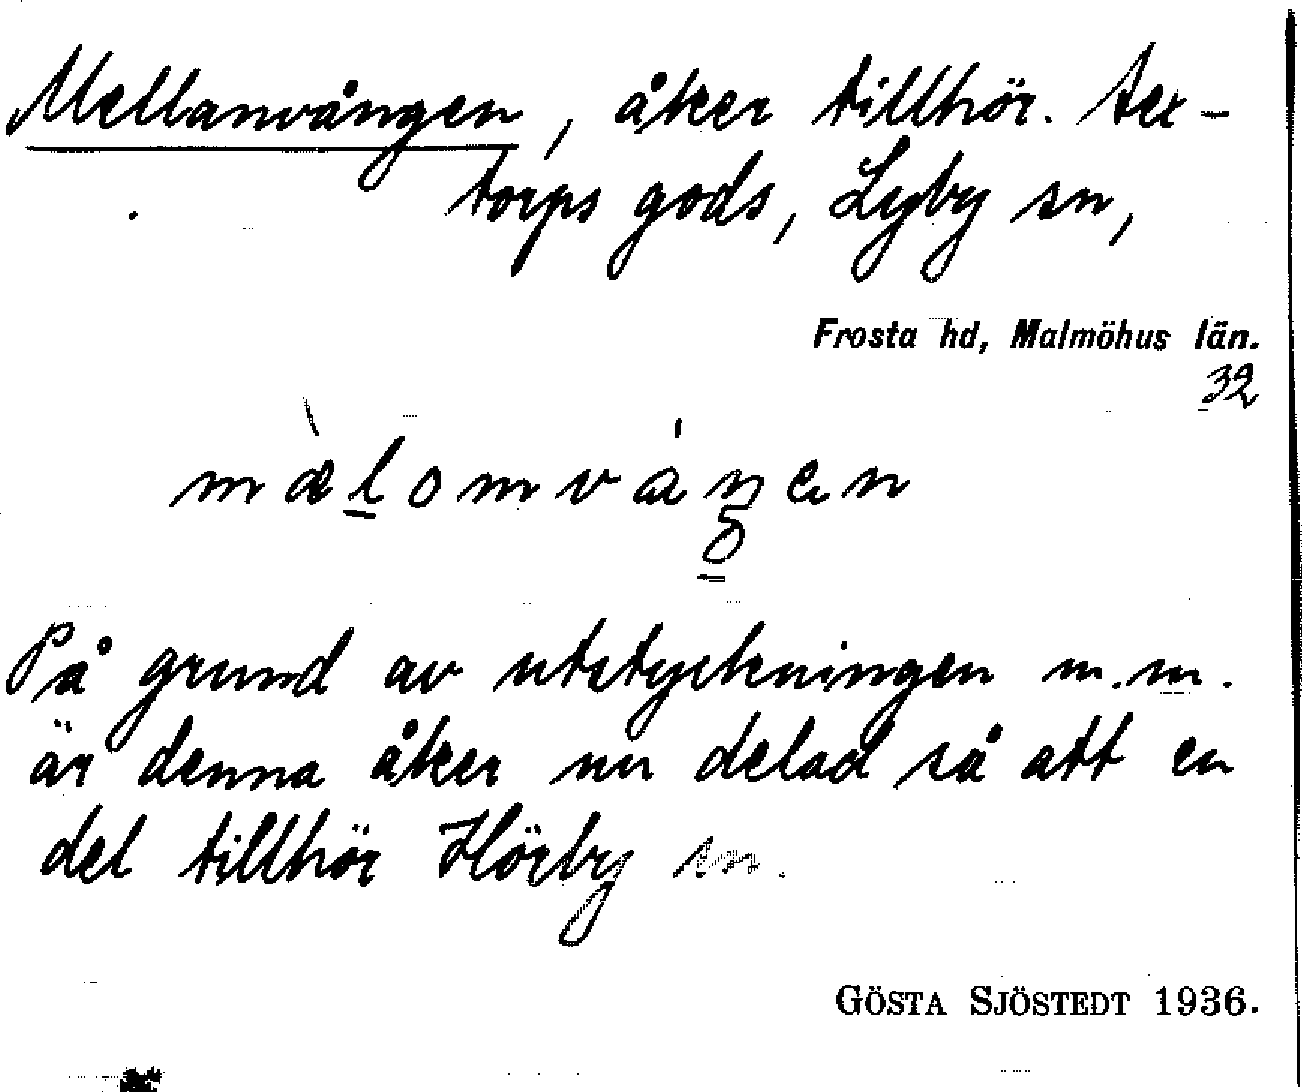 Mellanvången, åker tillhör. Tex-
torps gods, Lyby sn,
Frosta hd, Malmöhus län.
32
På grund av utstyckningen m.m.
är denna åker nu delad så att en
del tillhör Hörby sn.
GÖSTA SJÖSTEDT 1936.